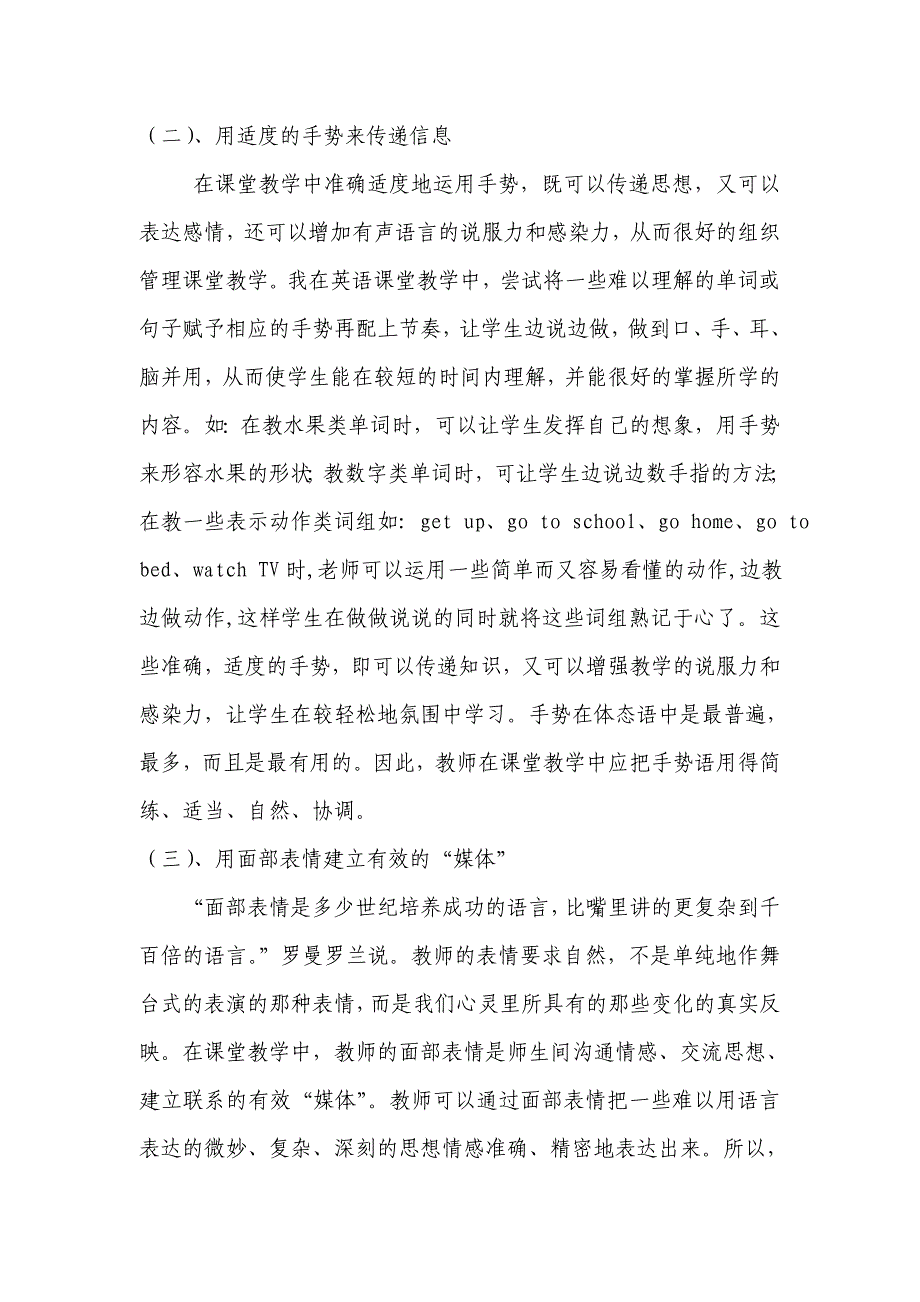 （二）、用适度的手势来传递信息
在课堂教学中准确适度地运用手势，既可以传递思想，又可以
表达感情，还可以增加有声语言的说服力和感染力，从而很好的组织
管理课堂教学。我在英语课堂教学中，尝试将一些难以理解的单词或
句子赋予相应的手势再配上节奏，让学生边说边做，做到口、手、耳、
脑并用，从而使学生能在较短的时间内理解，并能很好的掌握所学的
内容。如：在教水果类单词时，可以让学生发挥自己的想象，用手势
来形容水果的形状；教数字类单词时，可让学生边说边数手指的方法；
在教一些表示动作类词组如：get up、go to school、go home、go to
bed、watch TV 时,老师可以运用一些简单而又容易看懂的动作,边教
边做动作,这样学生在做做说说的同时就将这些词组熟记于心了。这
些准确，适度的手势，即可以传递知识，又可以增强教学的说服力和
感染力，让学生在较轻松地氛围中学习。手势在体态语中是最普遍，
最多，而且是最有用的。因此，教师在课堂教学中应把手势语用得简
练、适当、自然、协调。
（三）、用面部表情建立有效的“媒体”
“面部表情是多少世纪培养成功的语言，比嘴里讲的更复杂到千
百倍的语言。”罗曼罗兰说。教师的表情要求自然，不是单纯地作舞
台式的表演的那种表情，而是我们心灵里所具有的那些变化的真实反
映。在课堂教学中，教师的面部表情是师生间沟通情感、交流思想、
建立联系的有效“媒体”。教师可以通过面部表情把一些难以用语言
表达的微妙、复杂、深刻的思想情感准确、精密地表达出来。所以，